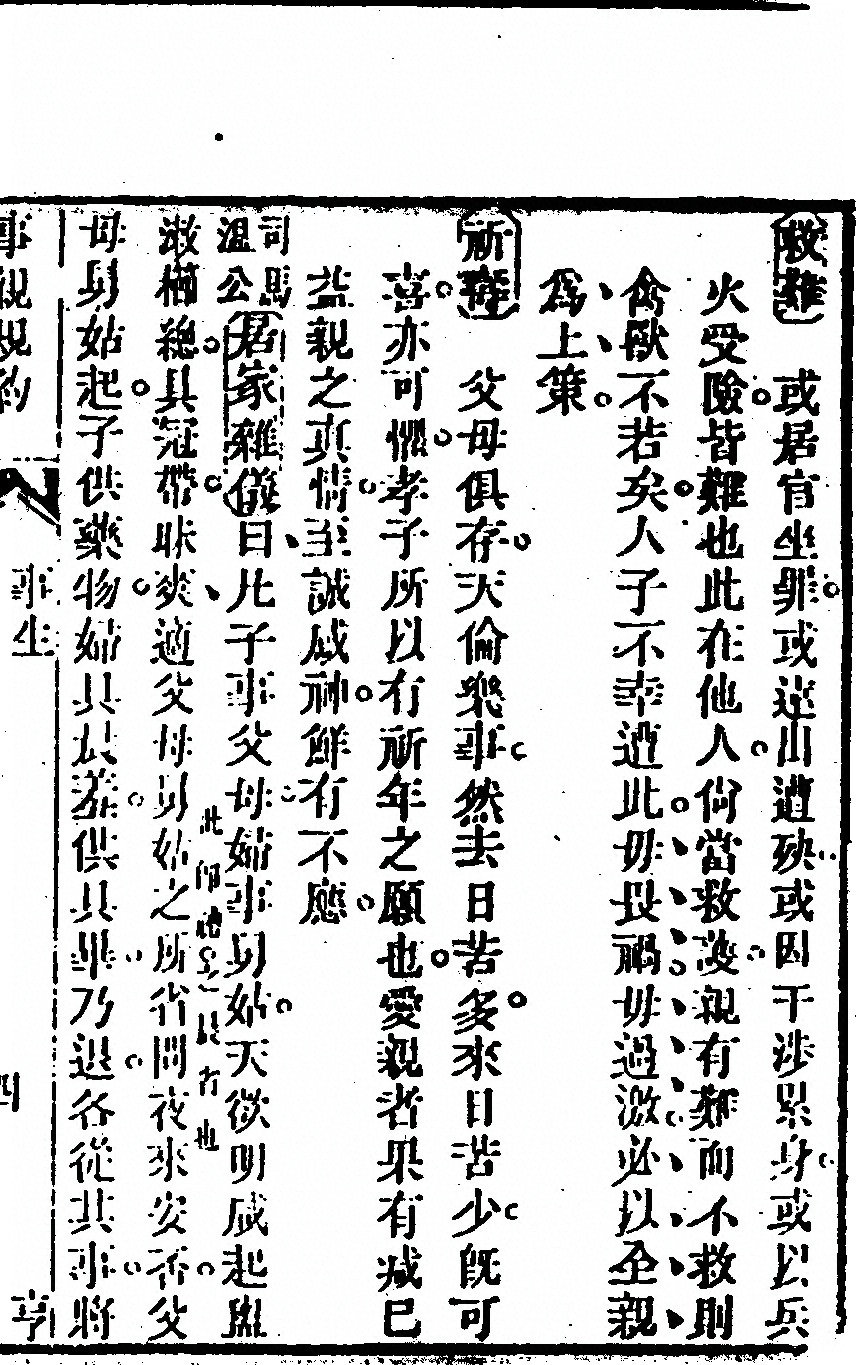 救難　或居官坐罪或遠出遭殃或因干涉累身或以兵
火受險皆難也此在他人尙當救護親有難而不救則
禽獸不若矣人子不幸遭此毋畏禍毋過激必以全親
爲上策
祈壽　父母俱存天倫樂事然去日苦多來日苦少旣可
喜亦可懼孝子所以有祈年之願也愛親者果有減已
益親之眞情至誠感神鮮有不應
司馬溫公居家雜儀曰凡子事父母婦事舅姑天欲明咸起盥
漱櫛總具冠帶昧爽適父母舅姑之所省問夜來安否父
此卽禮之晨省也
母舅姑起子供藥物婦具晨羞供具畢乃退各從其事將
事親規約　事生　四　亨